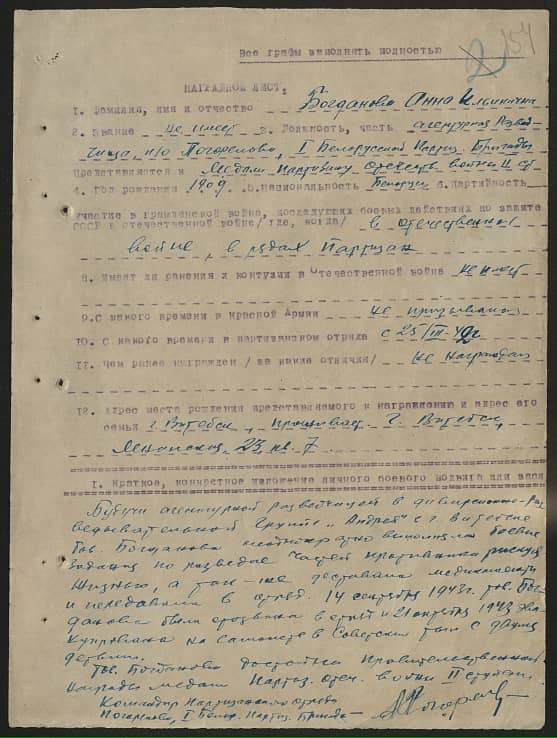 154
2
Все графы заполнять полностью
НАГРАДНОЙ ЛИСТ.
1. Фамилия, имя и отчество Богданова Анна Ильинична
2. Звание не имеет 3. Должность, часть агентурная развед-
чица п/о Погорелово, I Белорусской Партиз. Бригады
Представляется к Медали Партизану Отечеств войны II ст
4. Год рождения 1909. 5. Национальность Белорус 6. Партийность
Участие в гражданской войне, последующих боевых действиях по защите
СССР и отечественной войне/ где, когда/ в отечественной
войне, в рядах Партизан
8. Имеет ли ранения и контузии в Отечественной войне не имеет
9. С какого времени в Красной Армии не призывалась
10. С какого времени в партизанском отряде с 25/III-42г
11. Чем ранее награжден /за какие отличия/ не награждал
12. Адрес места рождения представляемого к награждению и адрес его
семьи г. Витебск, проживает г. Витебск,
Ленинская 23 кв. 7.
I. Краткое, конкретное изложение личного боевого подвига или засл
Будучи агентурной разведчицей в диверсионно-раз
ведывательной группе „Андрей" в г. Витебске
тов. Богданова неоднократно выполняла боевые
задания по разведке частей противника рискуя
жизнью, а так-же доставала медикаменты
и передавала в отряд. 14 сентября 1943г. тов. Бог-
данова была отозвана в отряд и 21 октября 1943 эва
куирована на самолете в Советский тыл с двумя
детьми.
Тов. Богданова достойна Правительственной
награды медали Партиз. отеч. войны II степени.
Командир Партизанского отряда
Погорелово, I Белор. Партиз. Бригады —